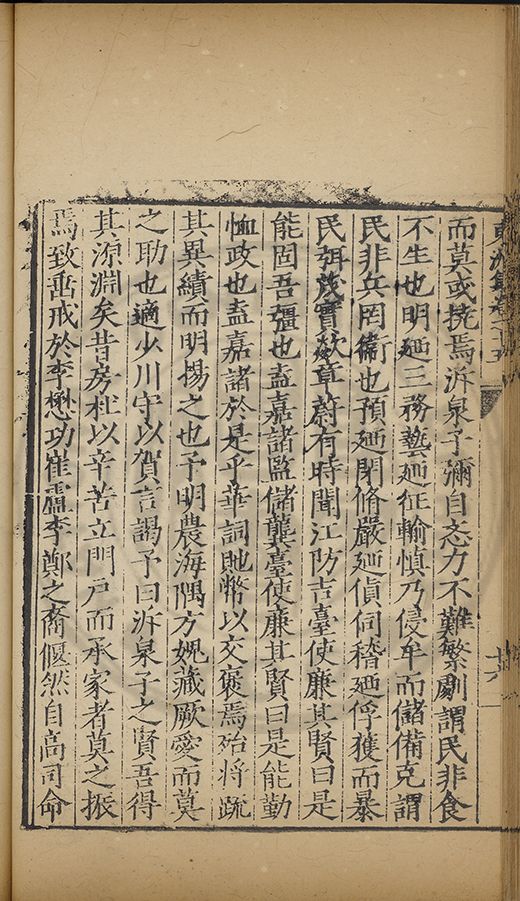 東洲集卷之十五
十六
而莫或撓焉泝泉子彌自忞力不難繁劇謂民非食
不生也明廼三務藝廼征輸慎乃侵牟而儲備克謂
民非兵罔衛也預廼閑脩嚴廼偵伺稽廼俘獲而暴
民弭茂實欻章蔚有時聞江防吉臺使廉其賢曰是
能固吾疆也盍嘉諸監儲龔臺使廉其賢曰是能勤
恤政也盍嘉諸於是乎華詞貤幣以交褒焉殆将疏
其異績而明揚之也予明農海隅方媿藏厥愛而莫
之助也適少川守以賀言謁予曰泝泉子之賢吾得
其源淵矣昔房杜以辛苦立門户而承家者莫之振
焉致垂戒於李懋功崔盧李鄭之裔偃然自高司命